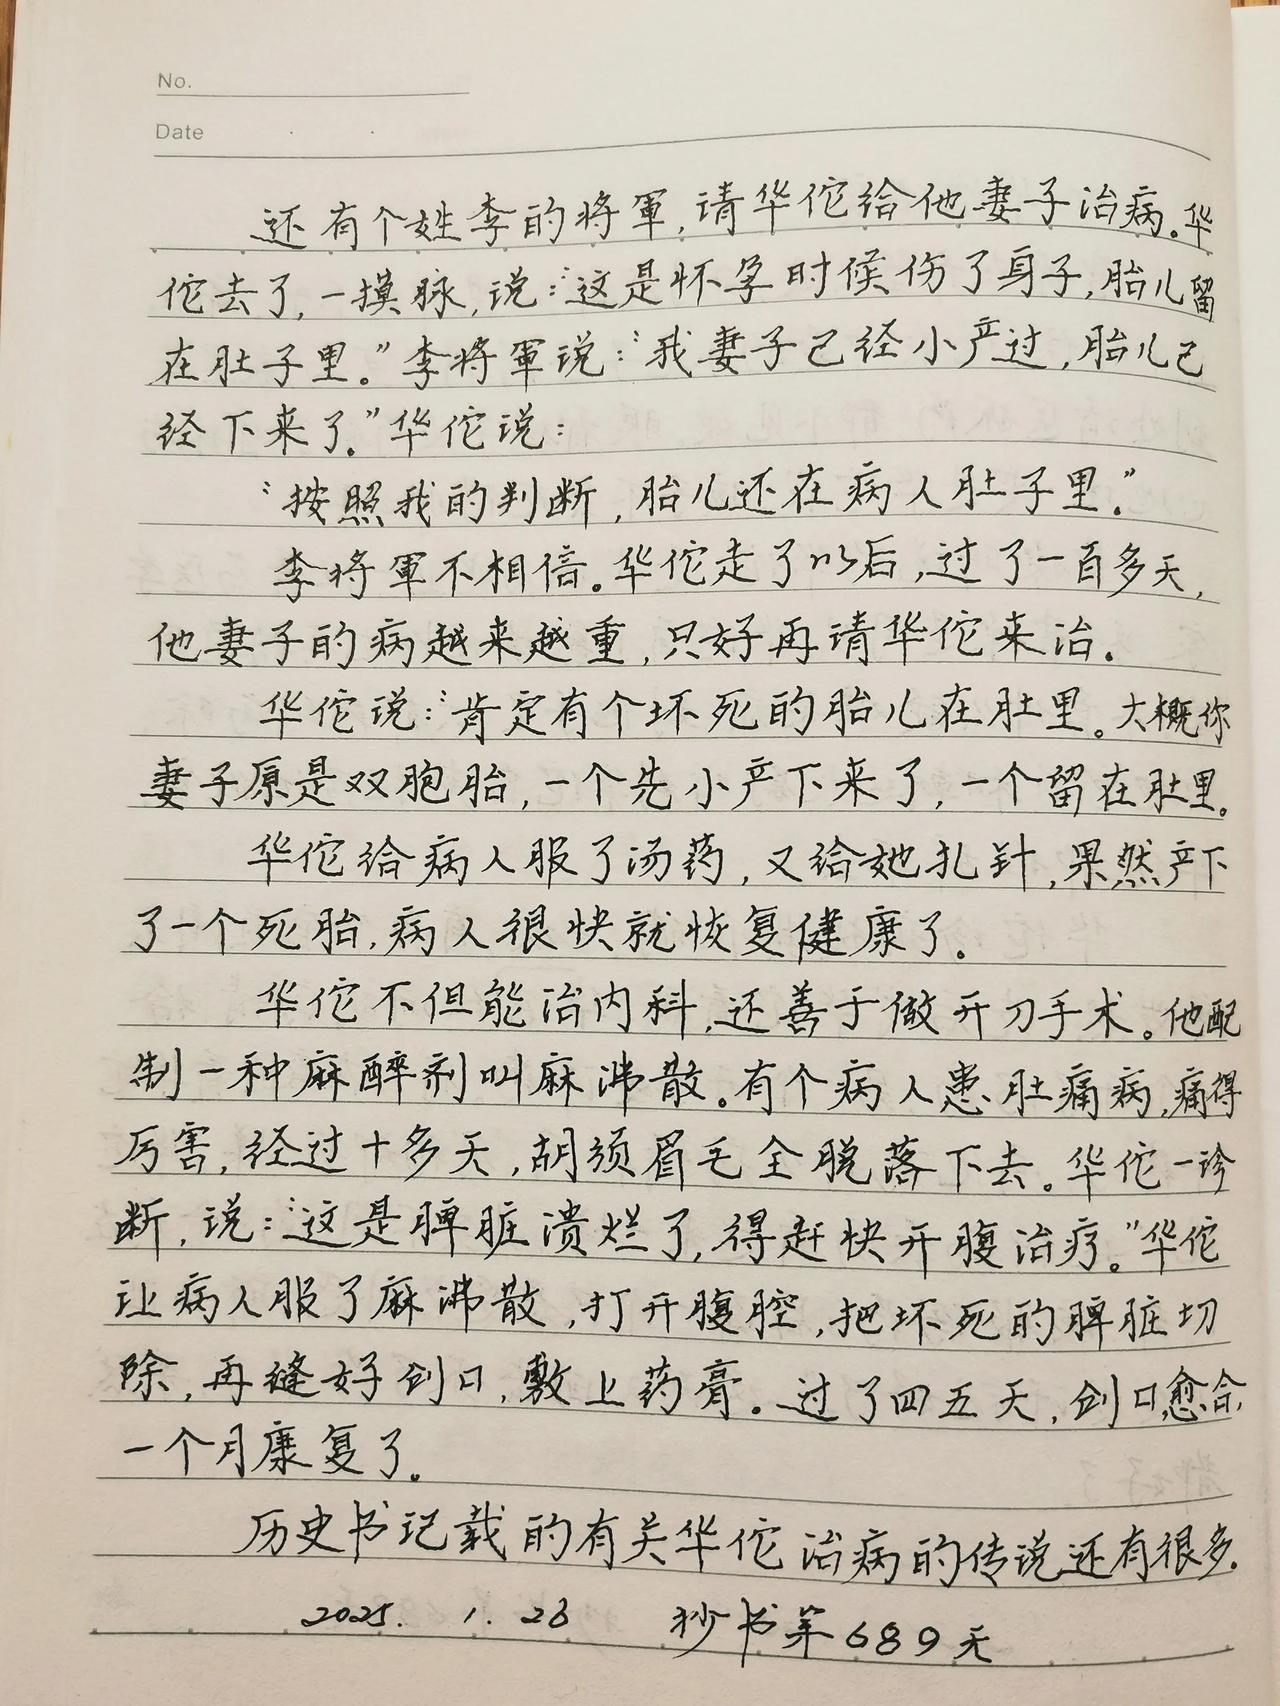 No.
Date
还有个姓李的将軍，请华佗给他妻子治病。华
佗去了，一摸脉，说：“这是怀孕时候伤了身子，胎儿留
在肚子里。”李将軍说：“我妻子己经小产过，胎儿己
经下来了。”华佗说：
“按照我的判断，胎儿还在病人肚子里。”
李将軍不相信。华佗走了以后，过了一百多天，
他妻子的病越来越重，只好再请华佗来治。
华佗说：“肯定有个坏死的胎儿在肚里。大概你
妻子原是双胞胎，一个先小产下来了，一个留在肚里。
华佗给病人服了汤药，又给她扎针，果然产下
了一个死胎，病人很快就恢复健康了。
华佗不但能治内科，还善于做开刀手术。他配
制一种麻醉剂叫麻沸散。有个病人患肚痛病，痛得
厉害，经过十多天，胡须眉毛全脱落下去。华佗一诊
断，说：“这是脾脏溃烂了，得赶快开腹治疗。”华佗
让病人服了麻沸散，打开腹腔，把坏死的脾脏切
除，再缝好创口，敷上药膏。过了四五天，创口愈合，
一个月康复了。
历史书记载的有关华佗治病的传说还有很多.
2025. 1. 26 抄书第689天